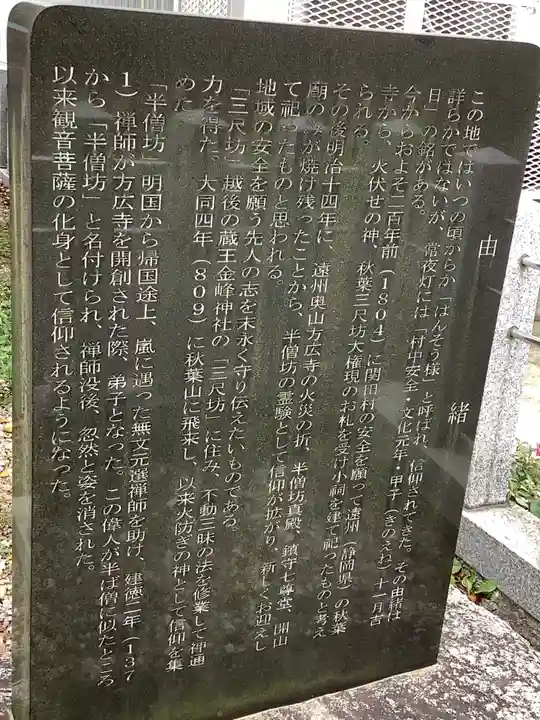 由緒
この地ではいつの頃からか「はんそう様」と呼ばれ、信仰されてきた。その由緒は
詳らかではないが、常夜灯には「村中安全・文化元年・甲子(きのえね)十一月吉
日」の銘がある。
今からおよそ二百年前(1804)に関田村の安全を願って遠州(静岡県)の秋葉
寺から、火伏せの神、秋葉三尺坊大権現のお札を受け小祠を建て祀ったものと考え
られる。
その後明治十四年に、遠州奥山方広寺の火災の折、半僧坊真殿、鎮守七尊堂、開山
廟のみが焼け残ったことから、半僧坊の霊験として信仰が拡がり、新しくお迎えし
て祀ったものと思われる。
地域の安全を願う先人の志を末永く守り伝えたいものである。
「三尺坊」越後の蔵王金峰神社の「三尺坊」に住み、不動三昧の法を修業して神通
力を得た。大同四年(809)に秋葉山に飛来し、以来火防ぎの神として信仰を集
めた
「半僧坊」明国から帰国途上、嵐に遇った無文元選禅師を助け、建徳二年(137
1)禅師が方広寺を開創された際、弟子となった。この偉人が半ば僧に似たところ
から「半僧坊」と名付けられ、禅師没後、忽然と姿を消された。
以来観音菩薩の化身として信仰されるようになった。